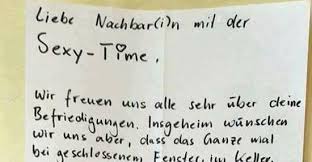 Liebe Nachbar(i)n mit der
Sexy-Time,
Wir freuen uns alle sehr über deine
Befriedigungen. Insgeheim wünschen
wir uns aber, dass das Ganze mal
bei geschlossenem Fenster, im Keller,